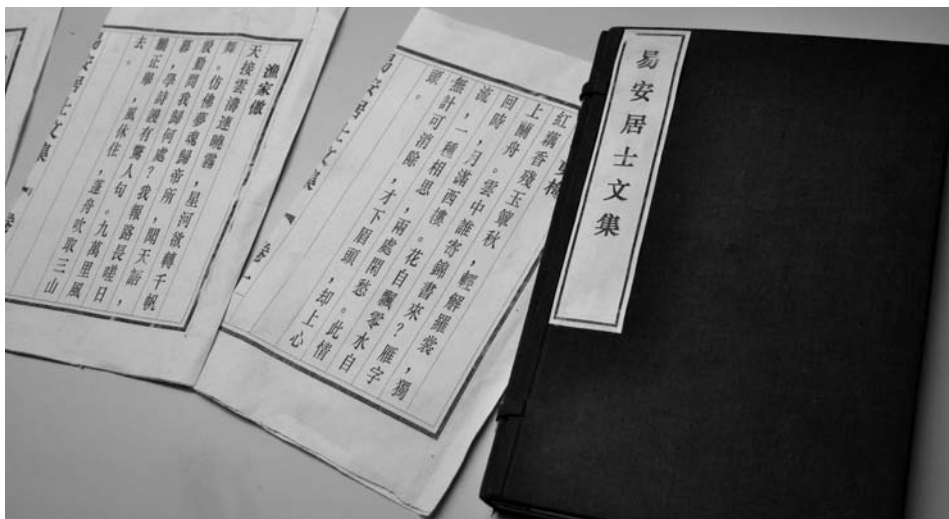 易安居士文集
紅藕香殘玉簟秋,輕解羅裳,獨
上蘭舟。雲中誰寄錦書來?雁字
回時,月滿西樓。花自飄零水自
流,一種相思,兩處閑愁。此情
無計可消除,才下眉頭,却上心
頭。
易安居士文集 卷一
漁家傲
天接雲濤連曉霧,星河欲轉千帆
舞。仿佛夢魂歸帝所,聞天語,
殷勤問我歸何處?我報路長嗟日
暮,學詩謾有驚人句。九萬里風
鵬正舉,風休住,蓬舟吹取三山
去。
易安居士文集 卷